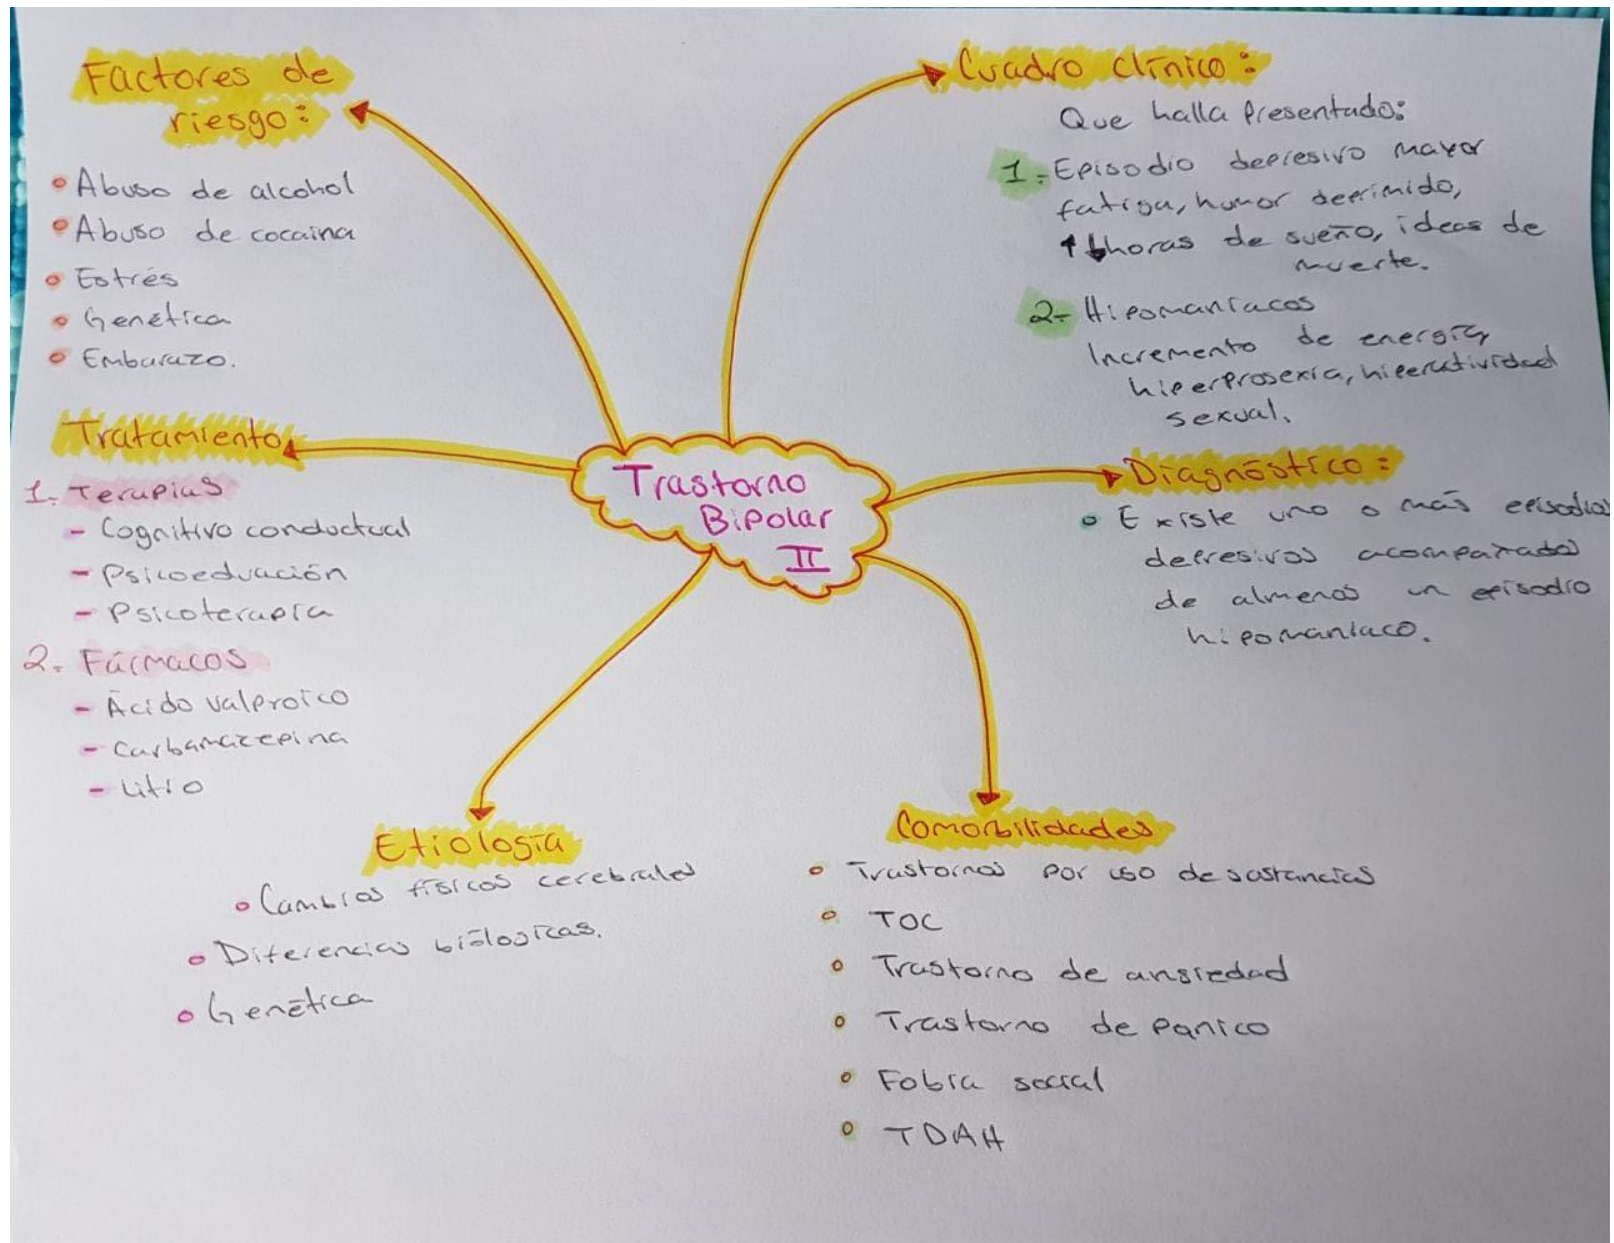 Factores de
riesgo:
Abuso de alcohol
Abuso de cocaina
Estrés
Genética
Embarazo.
Tratamiento
1. Terapias
- Cognitivo conductual
- Psicoeduación
- Psicoterapia
2. Fármacos
- Ácido valproico
- Carbamazepina
- Litio
Trastorno
Bipolar
II
Etiología
Cambios físicos cerebrales
Diferencias biólogicas.
Genética
Cuadro clínico:
Que halla presentado:
1.- Episodio depresivo mayor
fatiga, humor deprimido,
↑↓horas de sueño, ideas de
muerte.
2.- Hipomaníacos
Incremento de energía,
hiperprosexia, hiperatividad
sexual.
Diagnóstico:
Existe uno o más episodios
depresivos acompañados
de almenos un episodio
hipomaníaco.
Comorbilidades
Trastornos por uso de sustancias
TOC
Trastorno de ansiedad
Trastorno de panico
Fobia social
TDAH